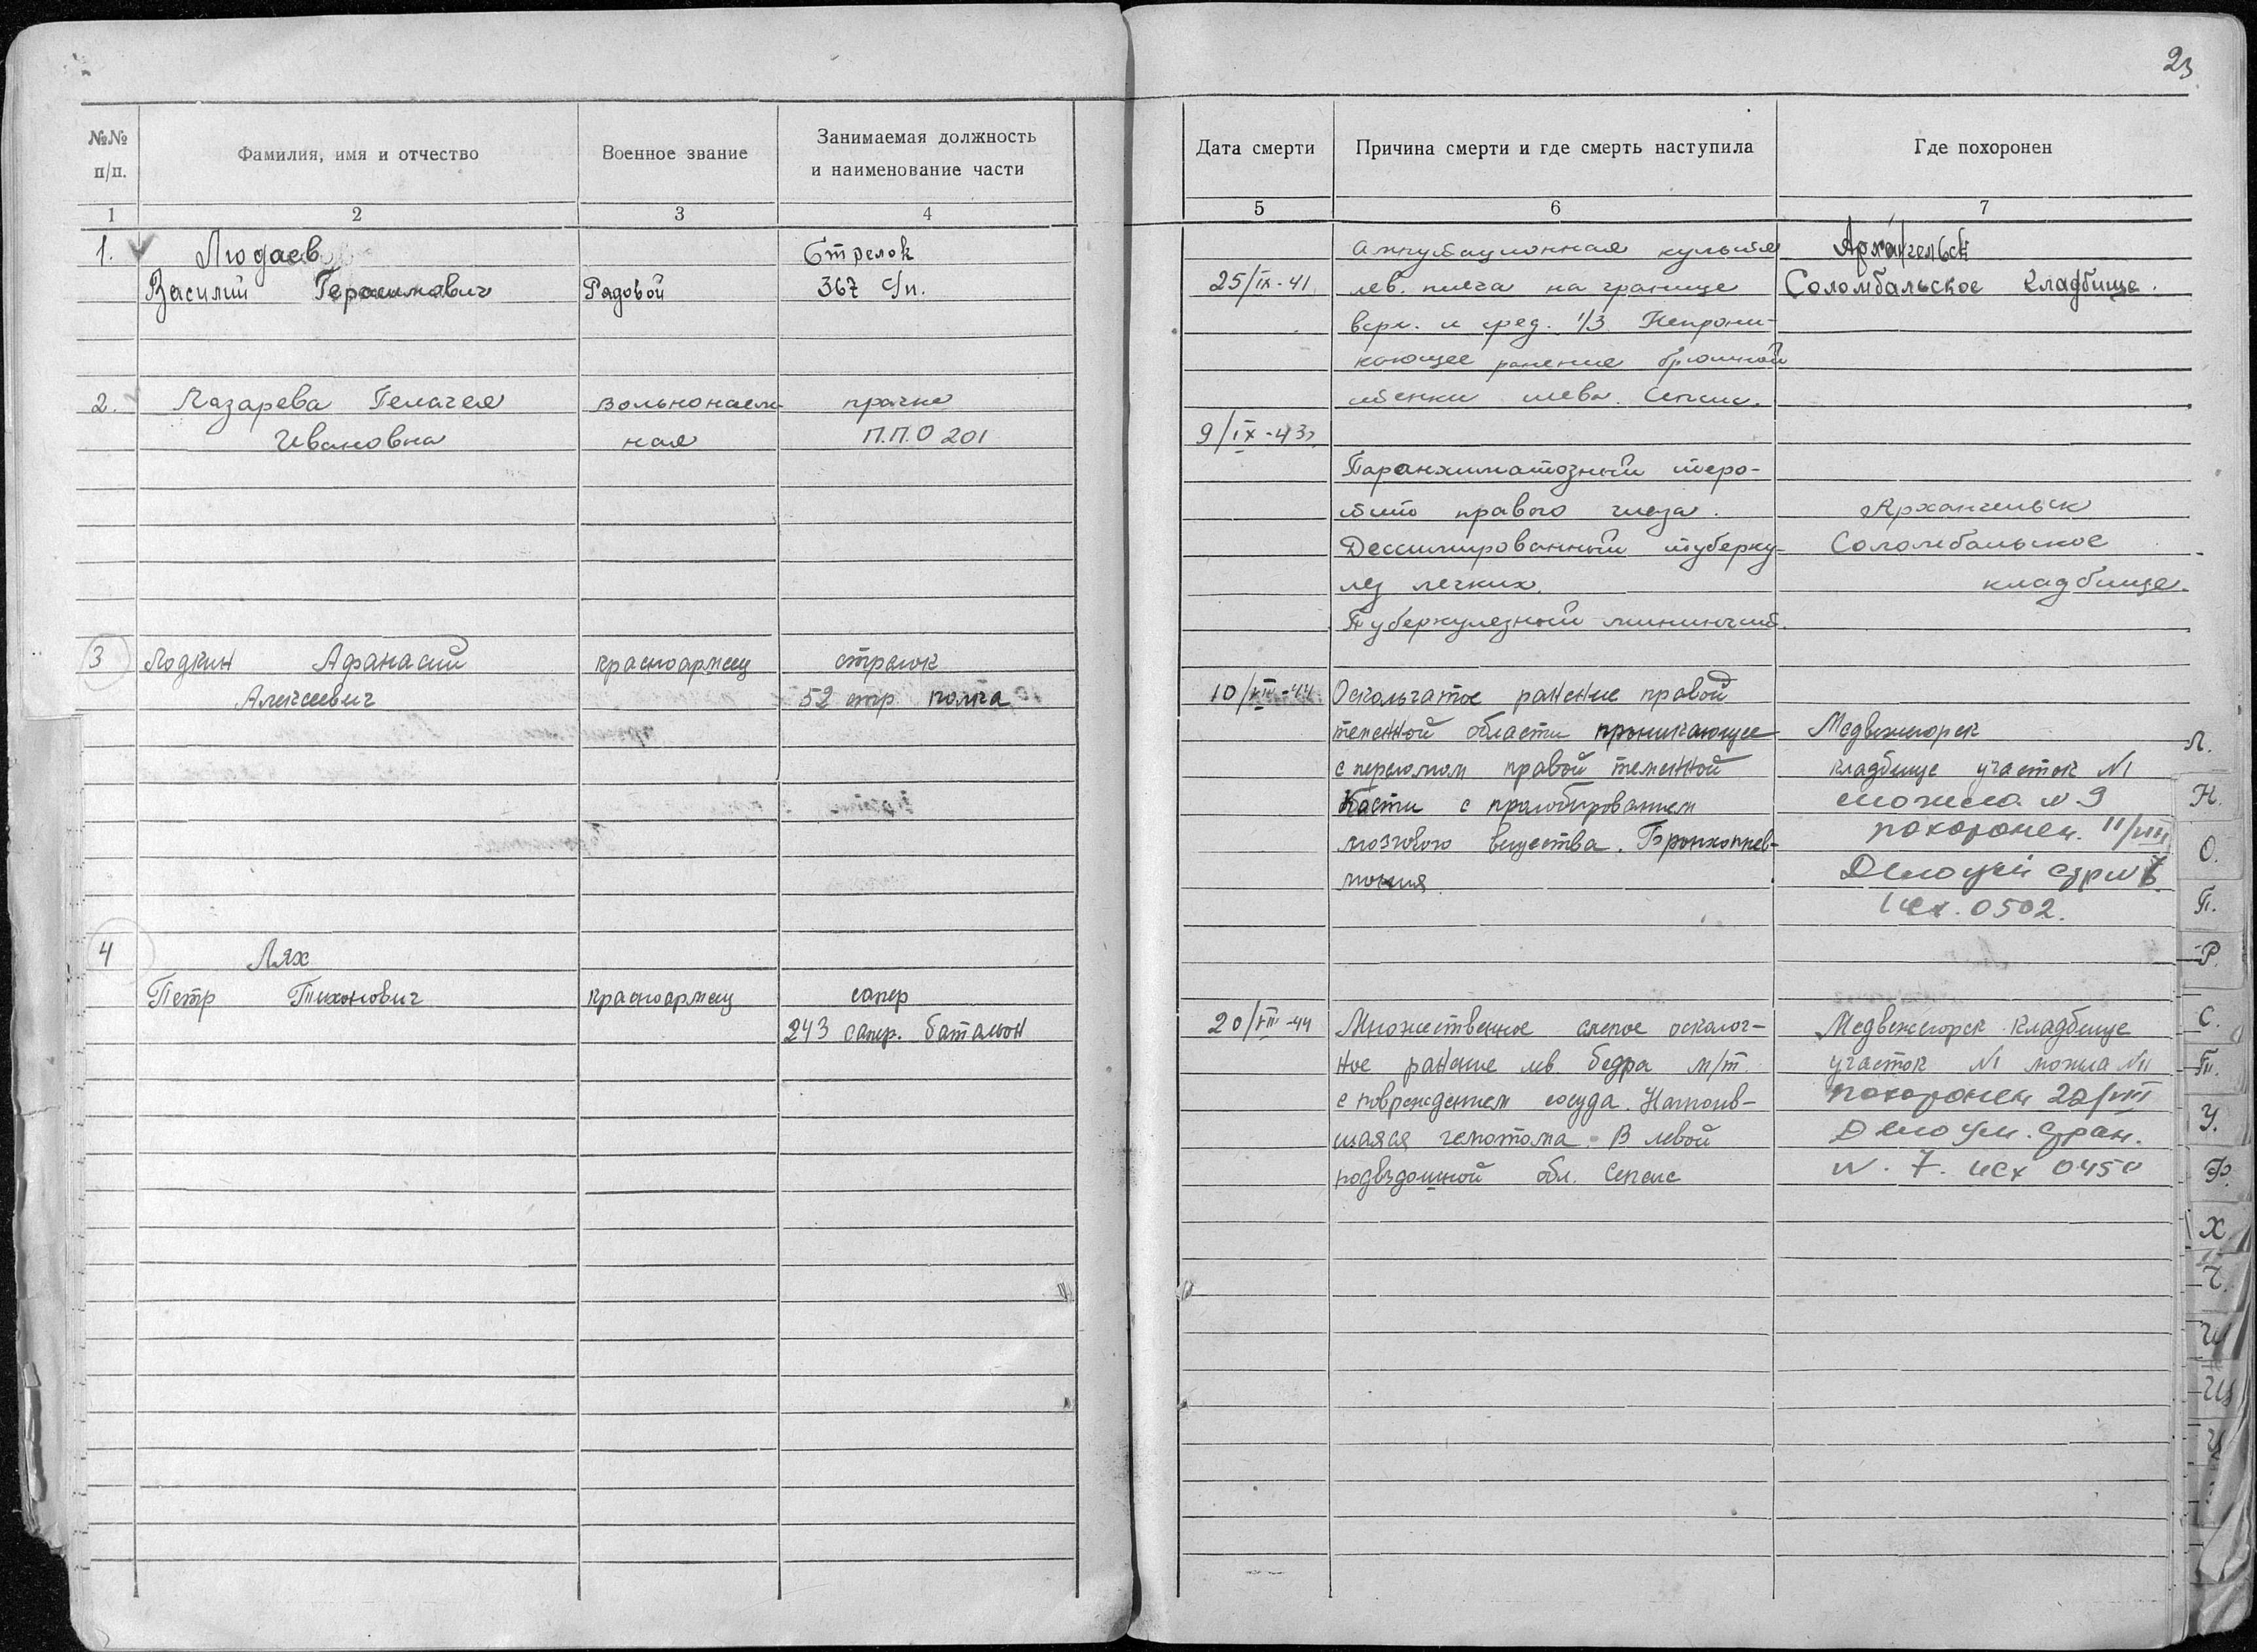 23
№№ п/п.
Фамилия, имя и отчество
Военное звание
Занимаемая должность
и наименование части
Дата смерти
Причина смерти и где смерть наступила
Где похоронен
1 2 3 4 5 6 7
1. Людаев
Стрелок
Василий Герасимович Рядовой 367 с/п.
Ампутационная культя
25/IX-41 лев. плеча на границе
верх. и сред. 1/3 Непрони-
кающее ранение брюшной
стенки слева. Сепсис.
Архангельск
Соломбальское кладбище.
2. Лазарева Пелагея вольнонаем- прачка
Ивановна ная П.П.О 201
9/IX-43г
Паранхиматозный
правого глаза.
Дессиминированный туберку-
лез легких.
Туберкулезный
Архангельск
Соломбальское
кладбище.
3 Лодкин Афанасий красноармеец стрелок
Алексеевич 52 стр. полка
10/VIII-44 Оскольчатое ранение правой
теменной области проникающее
с переломом правой теменной
кости с пролобированием
мозгового вещества. Бронхопнев-
мония
Медвежегорск
кладбище участок №1
могила №9
похоронен. 11/VIII
Дело
Исх. 0502.
4 Лях
Петр Тихонович красноармеец сапер
243 сапер. батальон
20/VIII-44 Множественное слепое осколоч-
ное ранение лев. бедра м/т.
с повреждением сосуда. Нагноив-
шаяся гемотома. В левой
подвздошной обл. Сепсис
Медвежегорск кладбище
участок №1 могила №11
похоронен 22/VIII
Дело ум. стран.
N. 7. исх 0450
Л.
Н.
О.
П.
Р.
С.
Т.
У.
Ф.
Х
Ч.
Ш
Щ